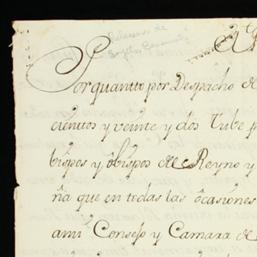 Porquanto por Despacho de
cientos y veinte y dos tube p
bispos y obispos de Reyno y
ña que en todas las ocasiones
ami Consejo y Camara de